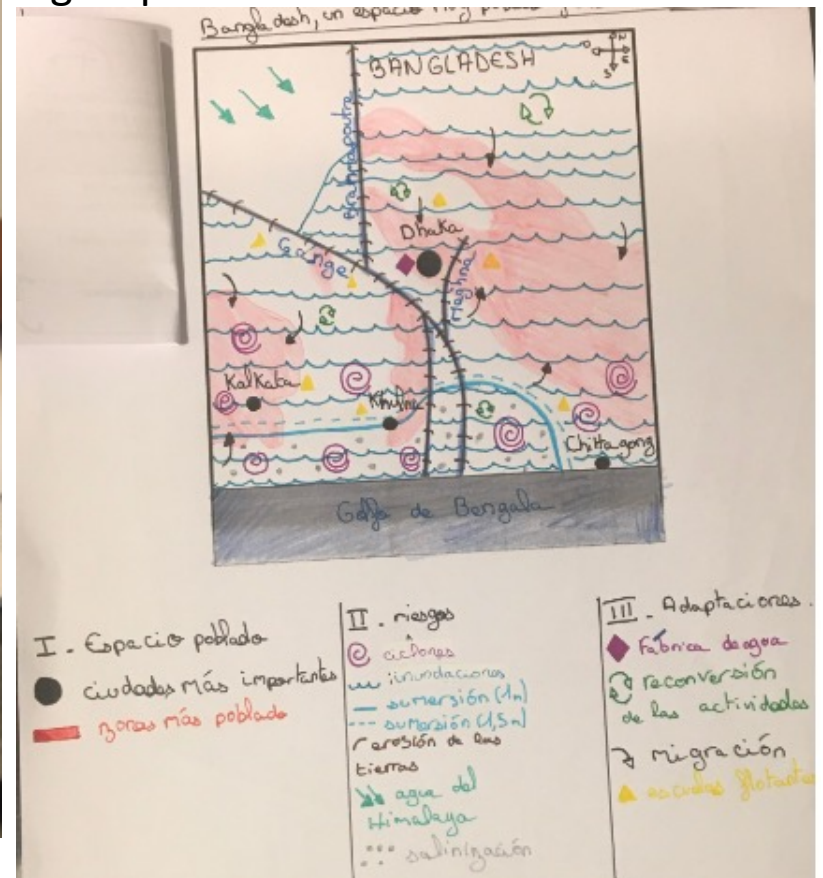 Bangladesh, un espacio muy
N
O
E
S
BANGLADESH
Brahmapoutra
Gange
Dhaka
Meghna
Kalkata
Khulna
Chittagong
Golfo de Bengala
I - Espacio poblado
ciudades más importantes
zonas más poblado
II - riesgos
ciclones
inundaciones
sumersión (1m)
sumersión (1,5m)
erosión de las
tierras
agua del
Himalaya
salinización
III - Adaptaciones.
Fábrica de agua
reconversión
de las actividades
migración
escuelas flotantes